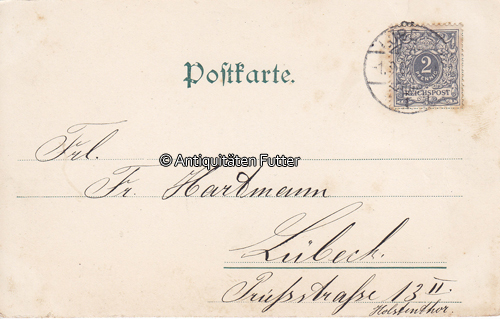 Postkarte.
2
PFENNIG
REICHSPOST
Frl.
© Antiquitäten Futter
Fr. Hartmann
Lübeck.
13 II.
Holstenthor.